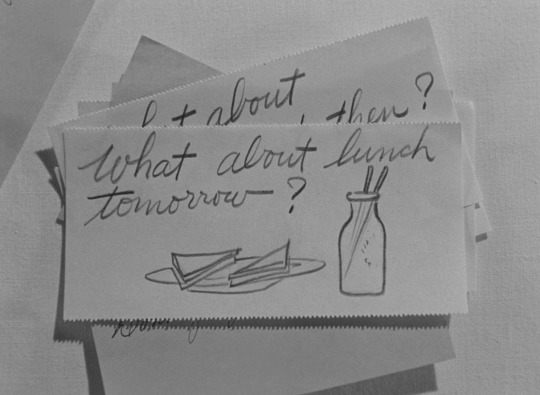 about
then?
What about lunch
tomorrow-?